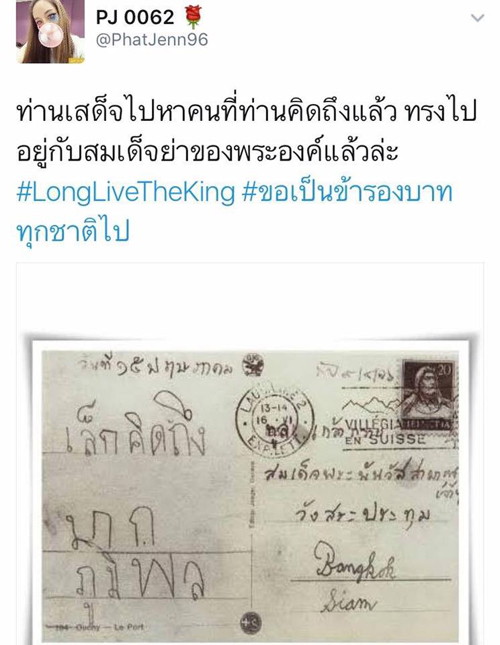 PJ 0062
@PhatJenn96
ท่านเสด็จไปหาคนที่ท่านคิดถึงแล้ว ทรงไป
อยู่กับสมเด็จย่าของพระองค์แล้วล่ะ
#LongLiveTheKing #ขอเป็นข้ารองบาท
ทุกชาติไป
วันที่ ๑๕ พฤษภาคม
20
LAUSANNE 2
13-14
EXP. LETT.
VILLÉGIA
EN SUISSE
HELVETIA
เล็กคิดถึง
สมเด็จพระพันวัสสา
วังสระปทุม
มาก
ภูมิพล
Bangkok
Siam
Ouchy — Le Port